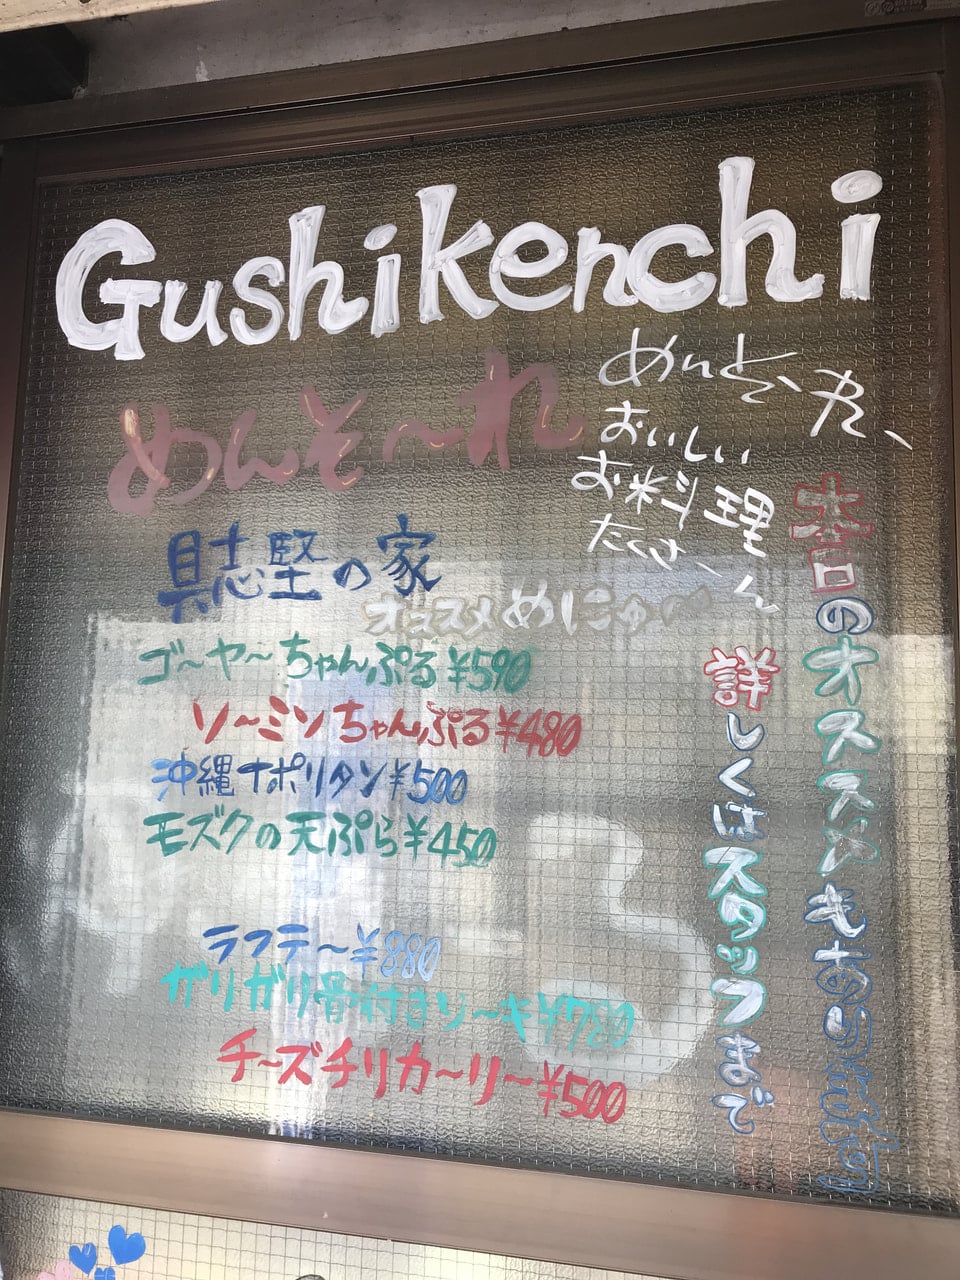 Gushikenchi
めんそ〜れ
おいしい
お料理
具志堅の家
オススメめにゅ〜
ゴ〜ヤ〜ちゃんぷる¥590
ソ〜ミンちゃんぷる¥480
沖縄ナポリタン¥500
モズクの天ぷら¥450
ラフテ〜¥880
ガリガリ骨付きソ〜キ¥780
チ〜ズチリカ〜リ〜¥500
本日のオススメもあります
詳しくはスタッフまで
3